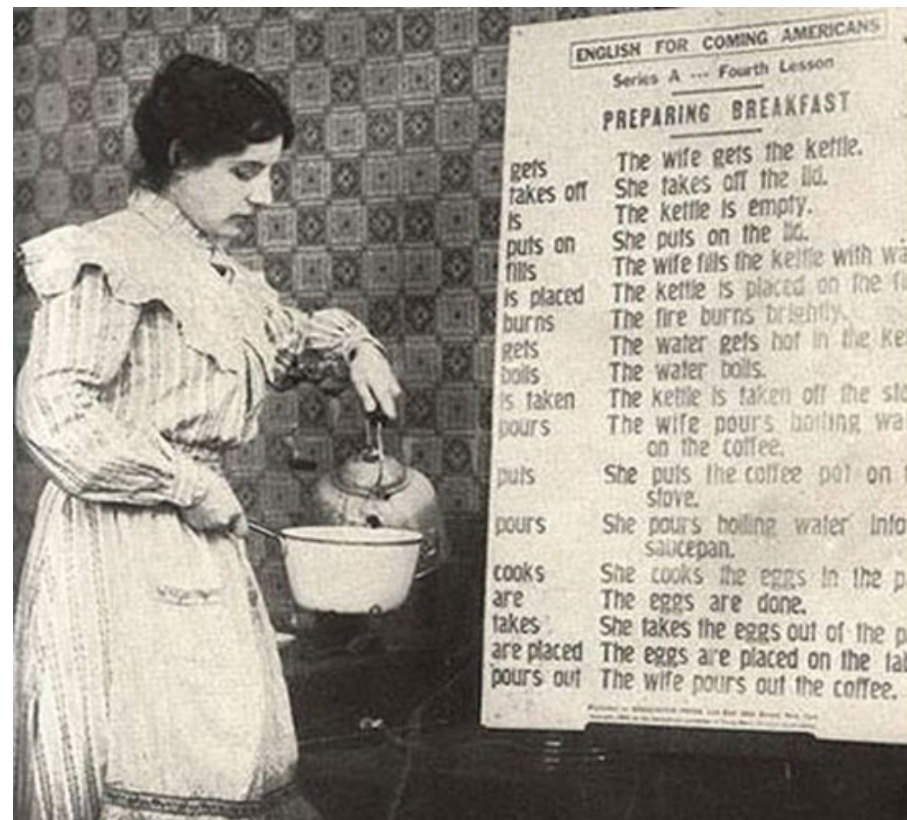 ENGLISH FOR COMING AMERICANS
Series A --- Fourth Lesson
PREPARING BREAKFAST
gets The wife gets the kettle.
takes off She takes off the lid.
is The kettle is empty.
puts on She puts on the lid.
fills The wife fills the kettle with
is placed The kettle is placed on the
burns The fire burns brightly.
gets The water gets hot in the
boils The water boils.
is taken The kettle is taken off the
pours The wife pours boiling
on the coffee.
puts She puts the coffee pot on
stove.
pours She pours boiling water
saucepan.
cooks She cooks the eggs in the
are The eggs are done.
takes She takes the eggs out of the
are placed The eggs are placed on the
pours out The wife pours out the coffee.